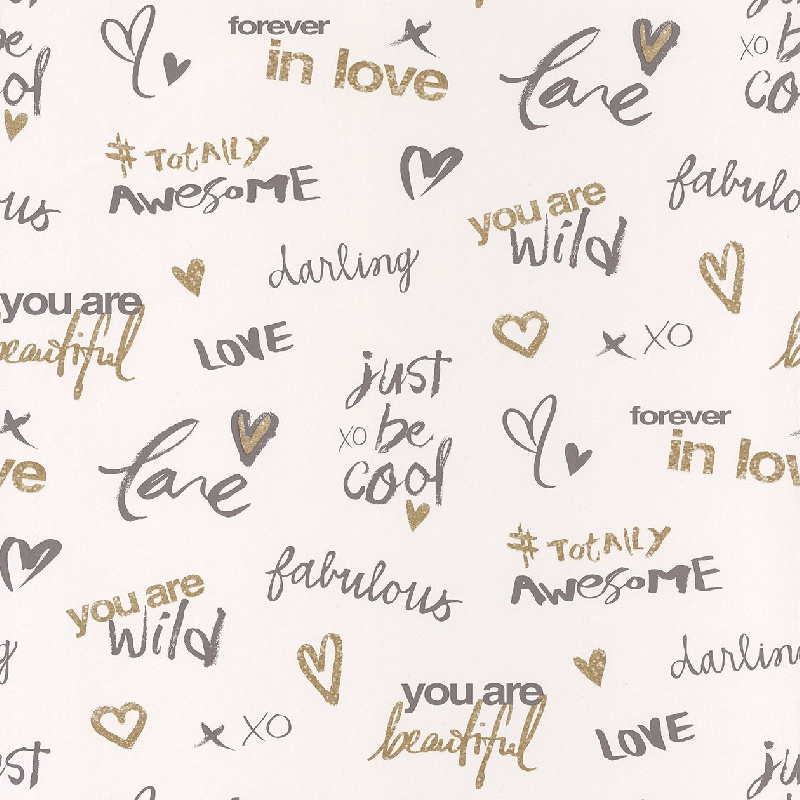 be
ool
forever
in love
love
xo b
co
#TOTALLY
AWESOME
us
you are
wild
fabulo
darling
you are
beautiful
LOVE
x XO
just
xo be
cool
ve
love
forever
in lov
#TOTALLY
AWESOME
fabulous
you are
wild
g
darlin
you are
beautiful
x XO
LOVE
st
ju